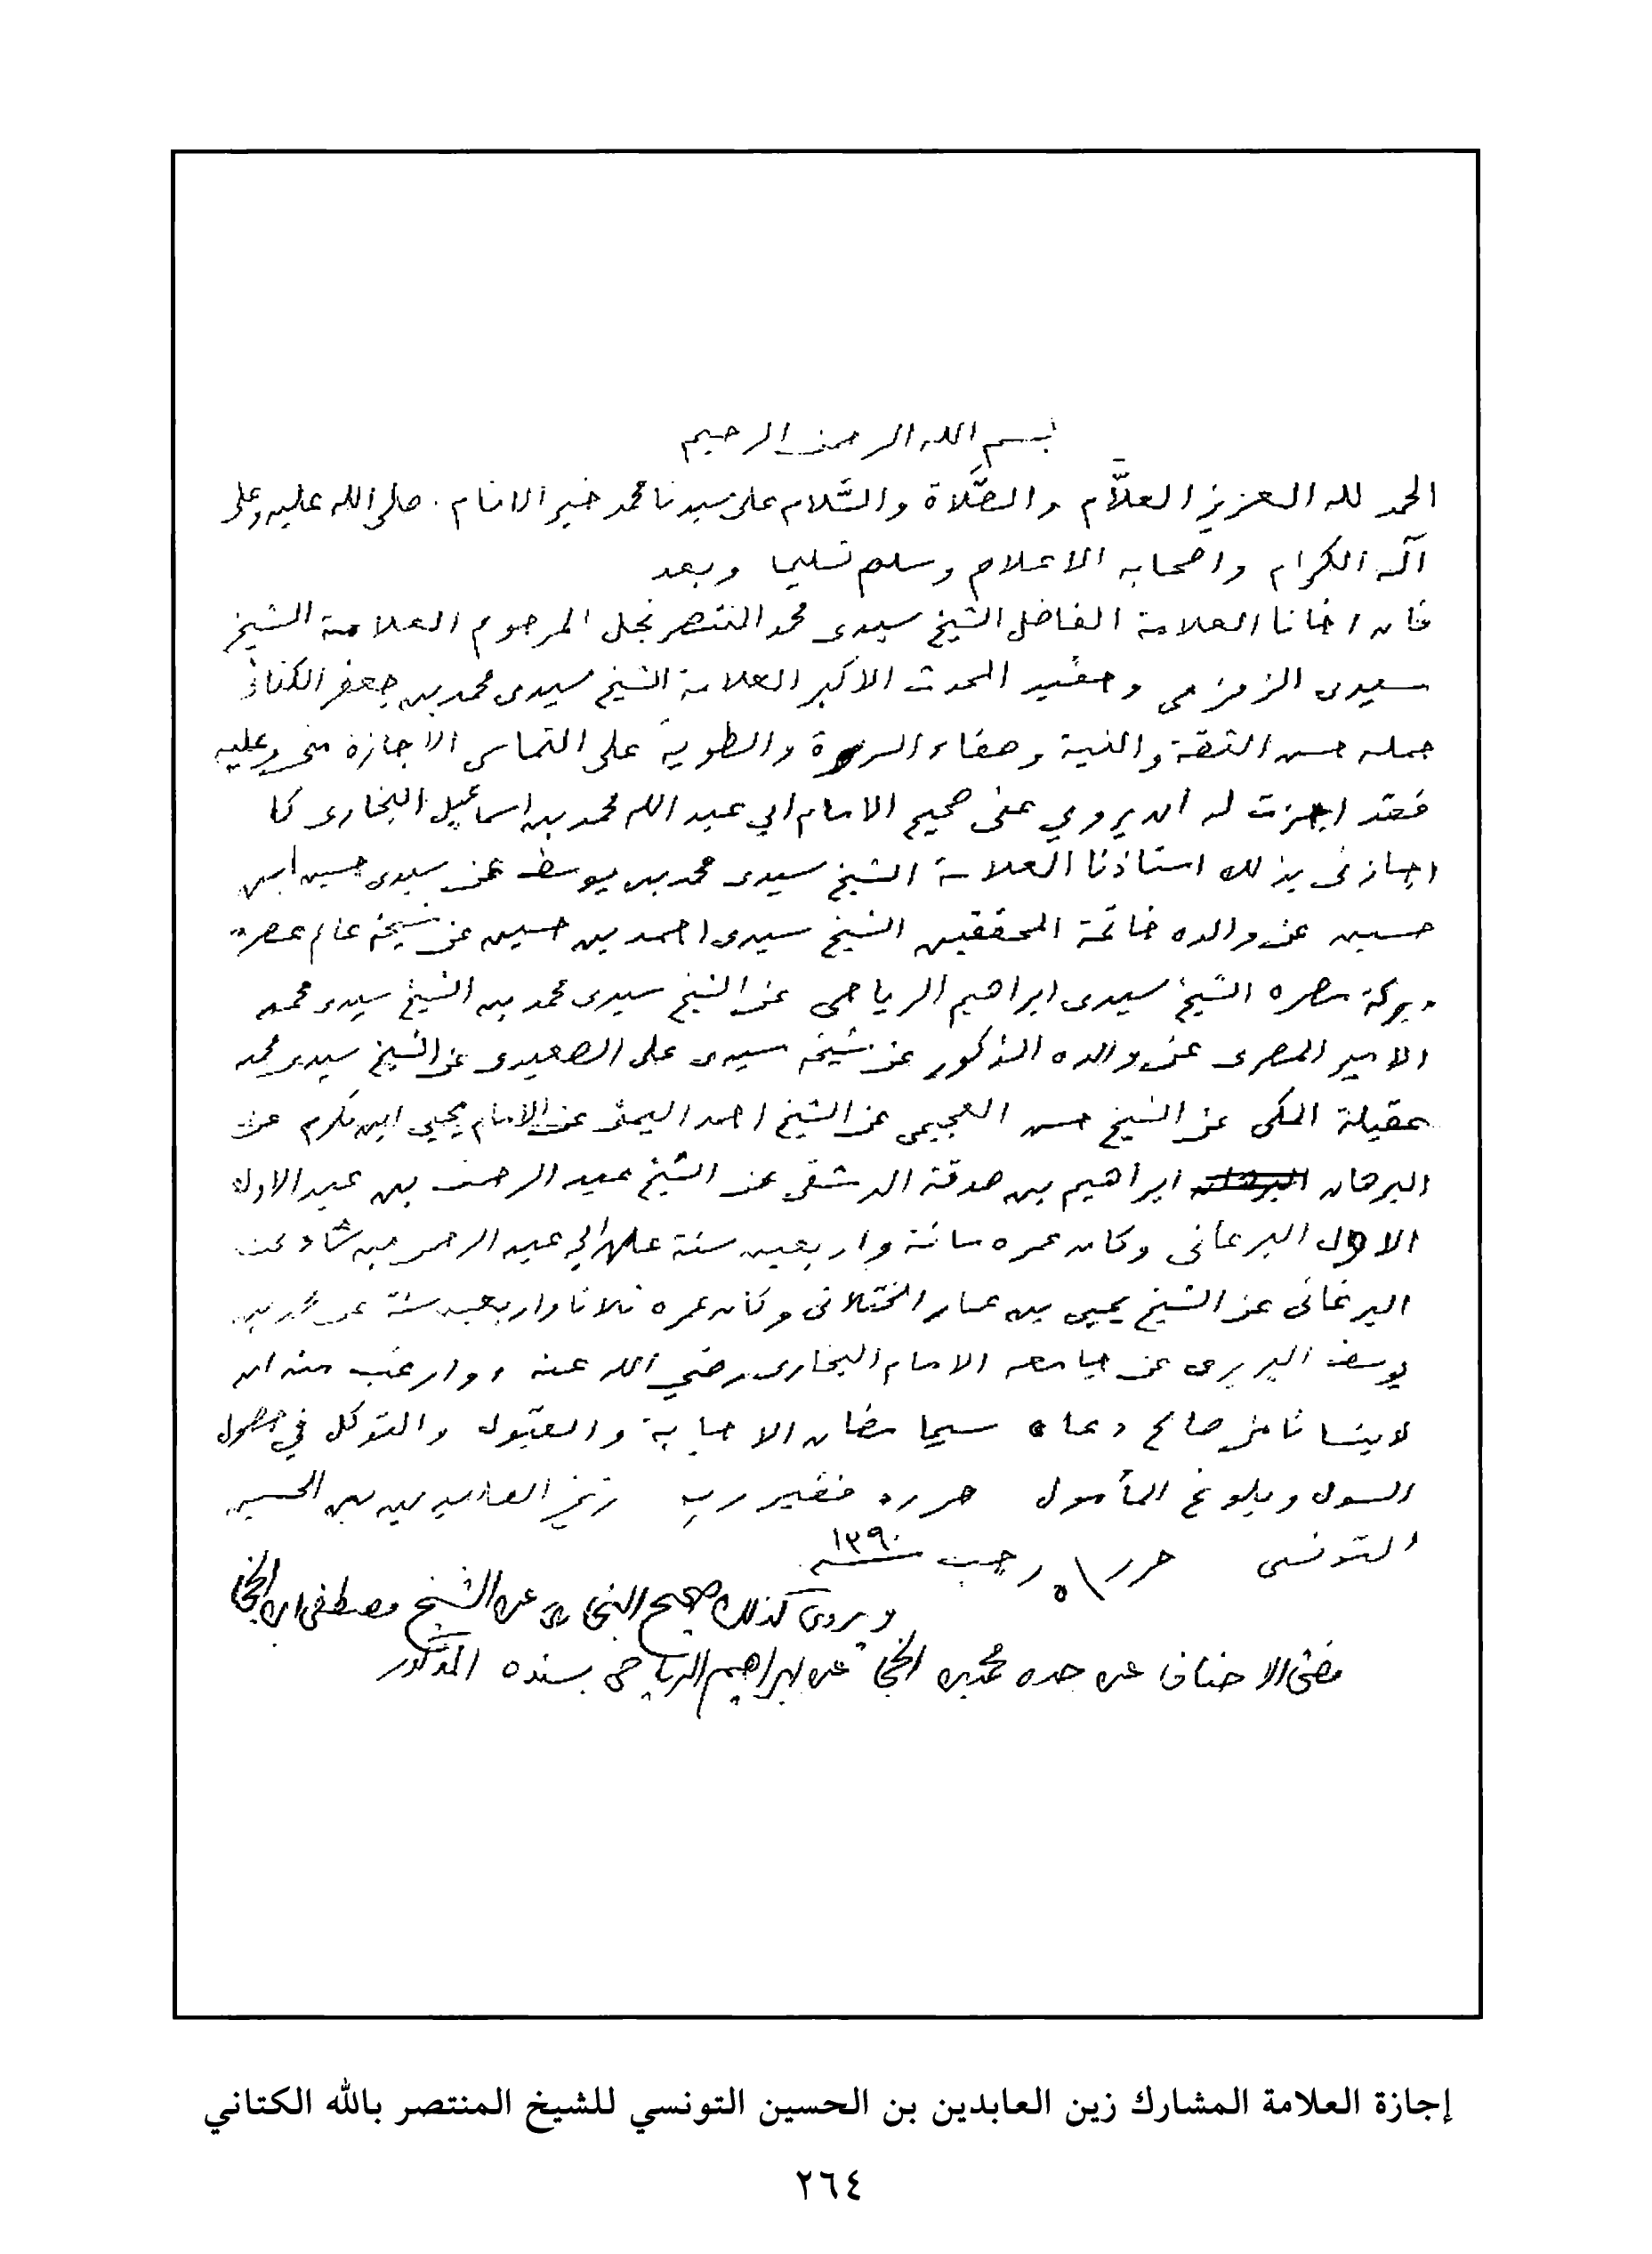 بسم الله الرحمن الرحيم
الحمد لله العزيز العلاَّم والصَّلاة والسَّلام على سيدنا محمد خير الانام . صلى الله عليه وعلى
آله الكرام واصحابه الاعلام وسلم تسليما وبعد
فان اخانا العلامة الفاضل الشيخ سيدى محمد المنتصر نجل المرحوم العلامة الشيخ
سيدى الزمزمى وحفيد المحدث الأكبر العلامة الشيخ سيدى محمد بن جعفر الكتانى
حمله حسن الثقة والنية وصفاء السريرة والطوية على التماس الاجازة منى وعليه
فقد اجزت له ان يروي عنى صحيح الامام ابي عبد الله محمد بن اسماعيل البخارى كما
اجازنى بذلك استاذنا العلامة الشيخ سيدى محمد بن يوسف عن سيدى حسين ابن
حسين عن والده خاتمة المحققين الشيخ سيدى احمد بن حسين عن شيخه عالم عصره
وبركة مصره الشيخ سيدى ابراهيم الرياحى عن الشيخ سيدى محمد بن الشيخ سيدى محمد
الامير المصرى عن والده المذكور عن شيخه سيدى على الصعيدى عن الشيخ سيدى محمد
عقيلة المكى عن الشيخ حسن العجيمى عن الشيخ احمد اليمنى عن الامام يحيى ابن مكرم عن
البرهان ابراهيم بن صدقة الدمشقى عن الشيخ عبد الرحمن بن عبد الاول
الاول البرغانى وكان عمره مائة واربعين سنة على ابي عبد الرحمن بن شاد بخت
البرغانى عن الشيخ يحيى بن عمار الختلانى وكان عمره ثلاثا واربعين سنة عن محمد بن
يوسف البربرى عن جامعه الامام البخارى رضي الله عنه وارغب منه ان
لا ينسانا من صالح دعاه سيما مظان الاجابة والقبول والتوكل في حصول
السول وبلوغ المأمول حرره فقير ربه زين العابدين بن الحسين
التونسى حرر ٥ رجب سنة ١٣٩٠
ويروى كذلك صحيح البخارى عن الشيخ مصطفى ابن الخجا
مفتى الاحناف عن جده محمد بن الخجا عن ابراهيم الرياحى بسنده المذكور
إجازة العلامة المشارك زين العابدين بن الحسين التونسي للشيخ المنتصر بالله الكتاني
٢٦٤